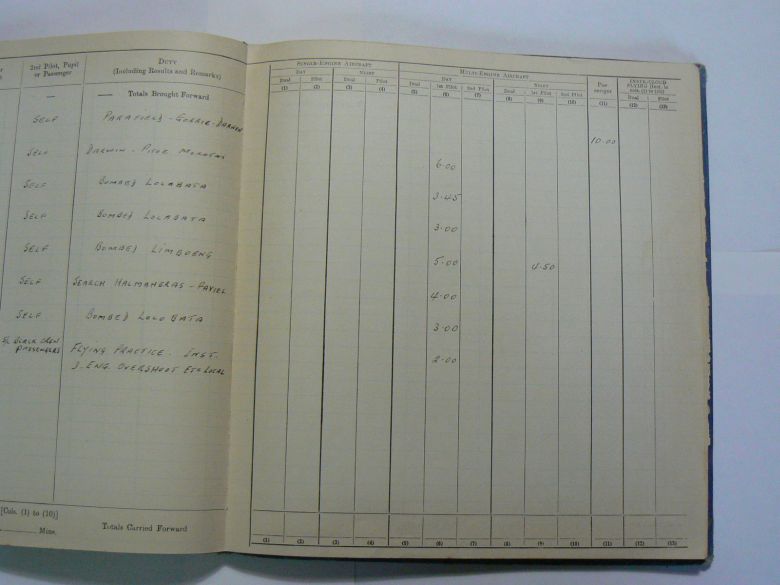 2nd Pilot, Pupil
or Passenger
DUTY
(Including Results and Remarks)
— —— Totals Brought Forward
SELF PARAFIELD - GORRIE - DARWIN
SELF DARWIN - MOROTAI
SELF BOMBED LOLABATA
SELF BOMBED LOLABATA
SELF BOMBED LIMBOENG
SELF SEARCH HALMAHERAS -
SELF BOMBED LOLOBATA
BLACK CREW
PASSENGERS
FLYING PRACTICE. INST.
3-ENG OVERSHOOT ETC LOCAL
[Cols. (1) to (10)]
Mins.
Totals Carried Forward
SINGLE-ENGINE AIRCRAFT
DAY NIGHT
Dual Pilot Dual Pilot
(1) (2) (3) (4)
MULTI-ENGINE AIRCRAFT
DAY NIGHT
Dual 1st Pilot 2nd Pilot Dual 1st Pilot 2nd Pilot
(5) (6) (7) (8) (9) (10)
Pas-
senger
(11)
INSTR/CLOUD
FLYING [Incl. in
cols. (1) to (10)]
Dual Pilot
(12) (13)
10.00
6.00
3.45
3.00
5.00 4.50
4.00
3.00
2.00
(1) (2) (3) (4) (5) (6) (7) (8) (9) (10) (11) (12) (13)